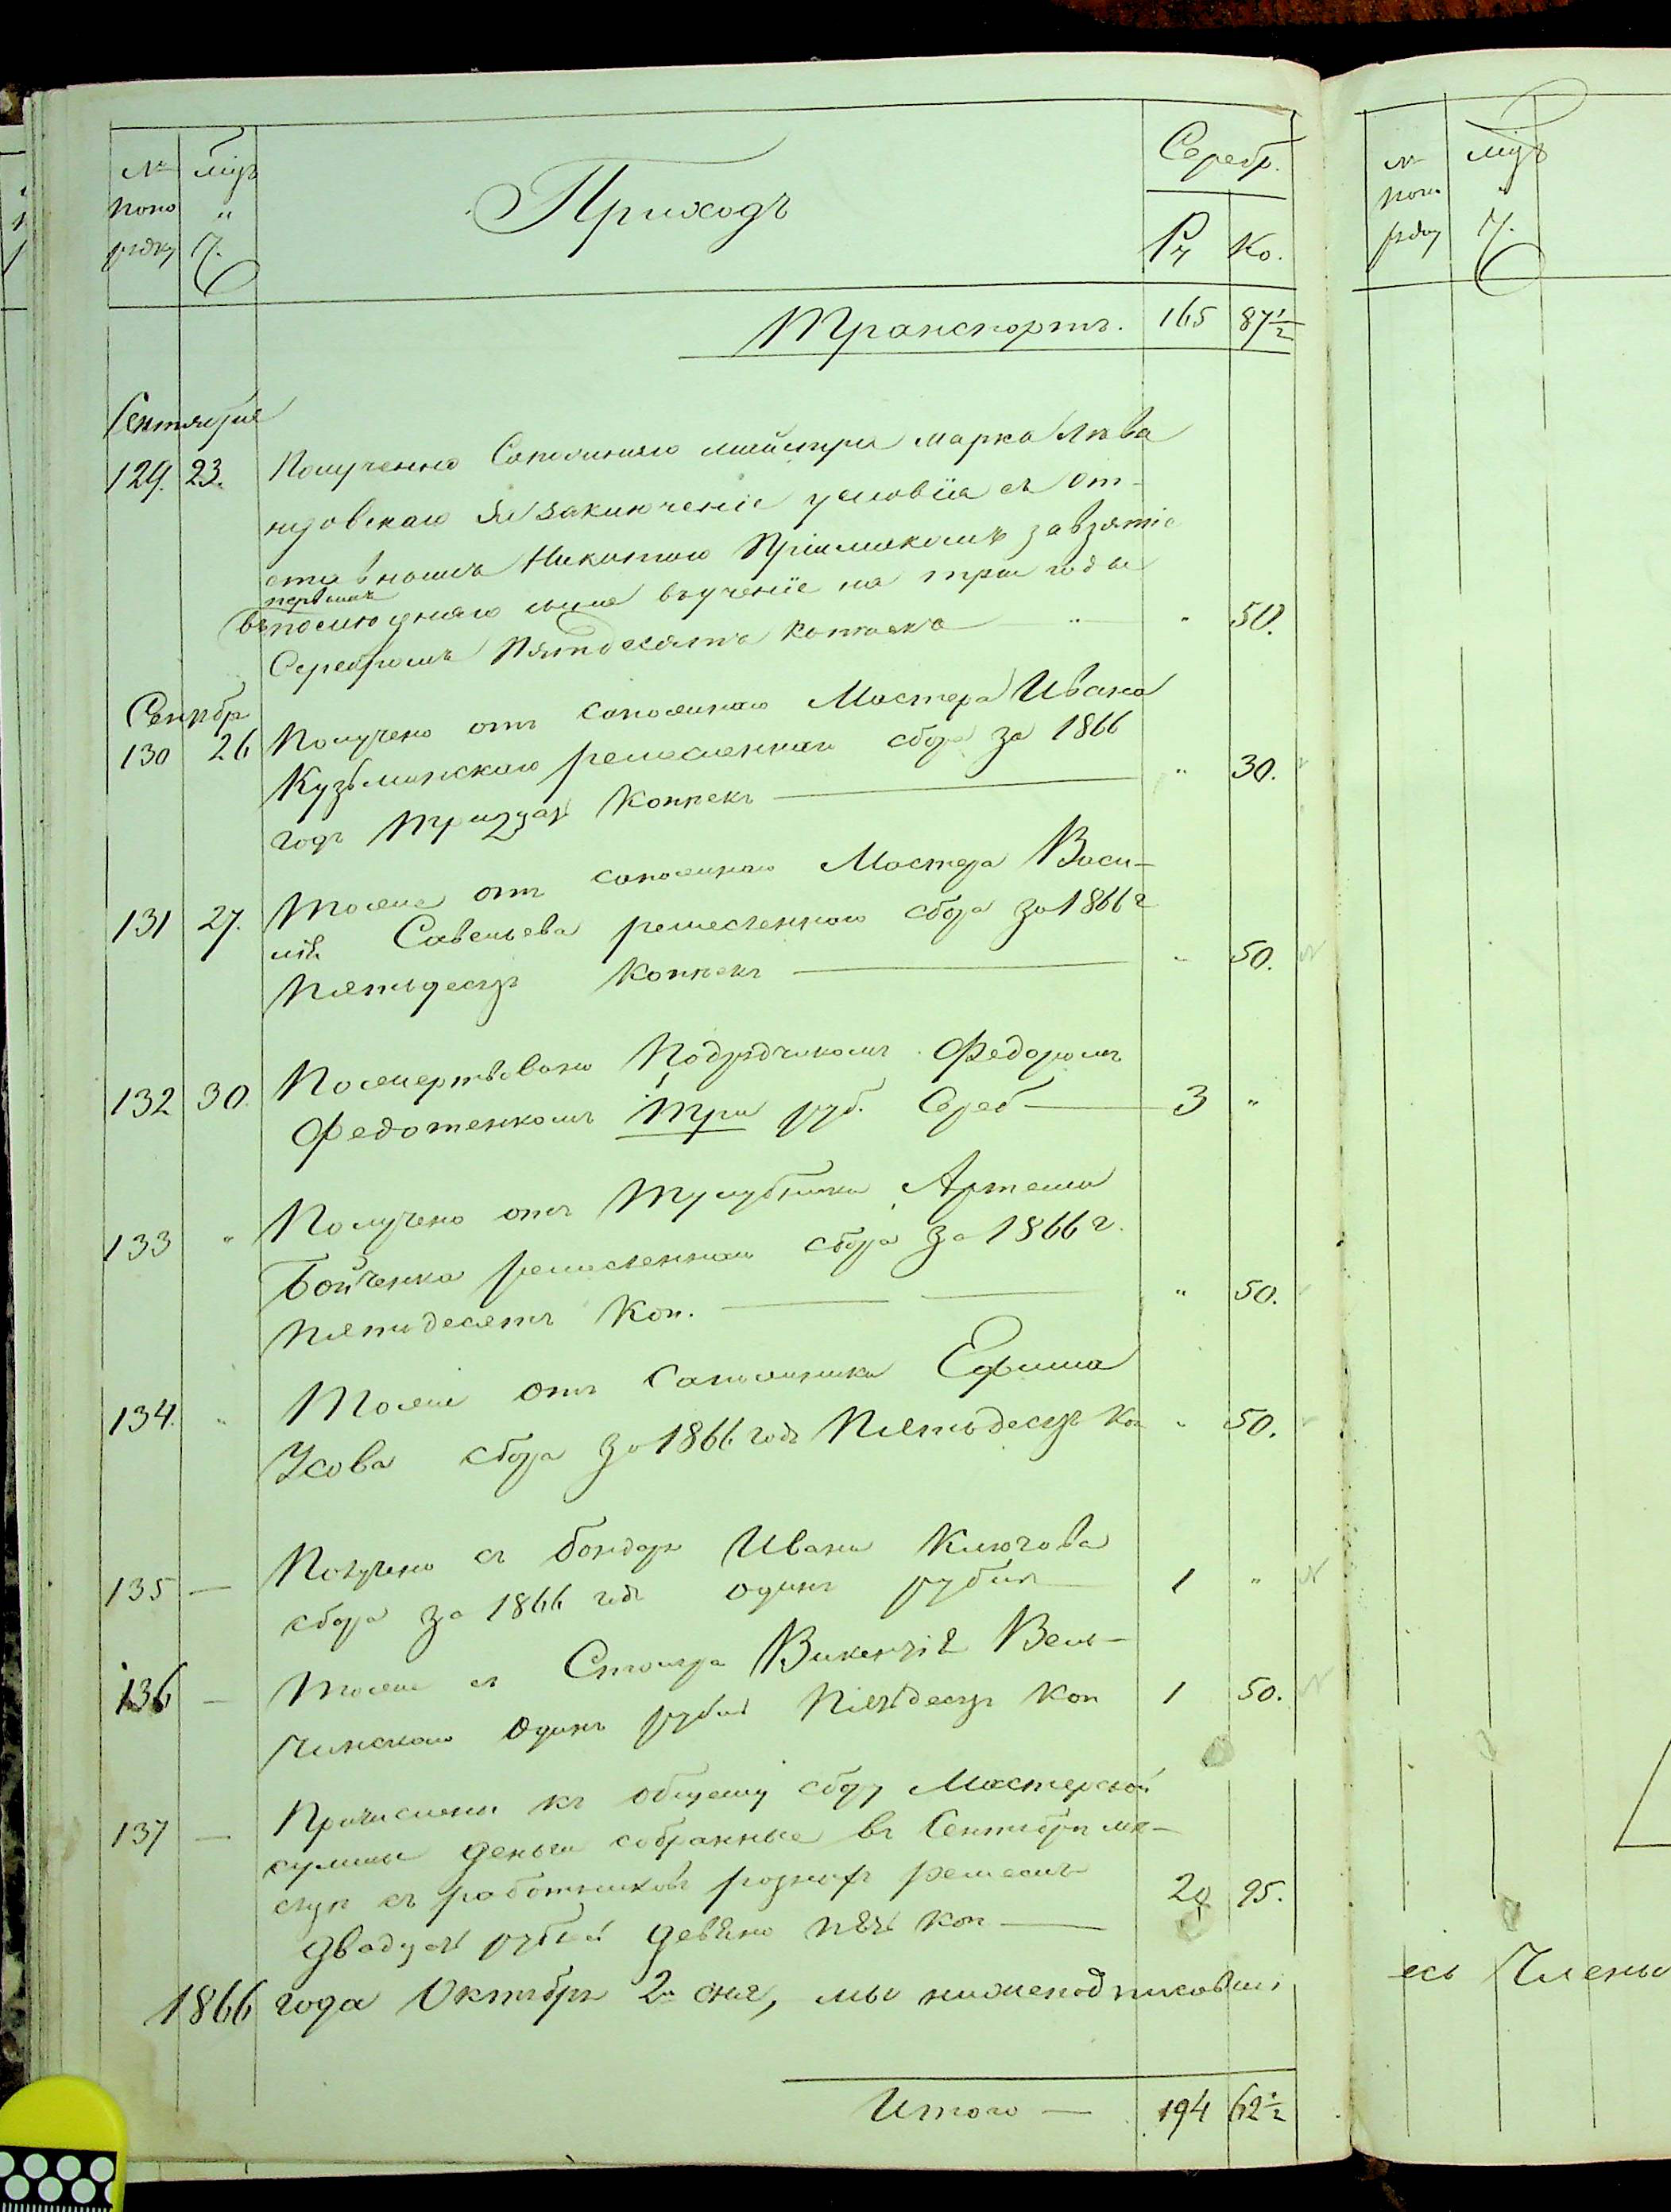 № поко рядку
міц ч.
Приходъ
Серебр.
Ру Ко.
Транспортъ. 165 87 1/2
Сентября
129. 23. Полученно Сапожнаго майстра Марка
за заключеніе условіа съ от-
ставномъ Никитою за взятіе
первымъ
сына въученіе на три года
Серебромъ Пятдесятъ копѣекъ " 50.
Сентябр
130 26 Получено отъ сапожнаго Мастера Ивана
Кузьминскаго ремесленнаго сбора за 1866
годъ Тридцать Копѣекъ " 30.
131 27. Тоже отъ сапожнаго Мастера Васи-
лія Савельева ремесленнаго сбора за 1866 г
Пятьдесят Копѣекъ " 50.
132 30. Пожертвовано Подрядчикомъ Федоромъ
Федотенкомъ Три руб. Сереб 3 "
133 " Получено отъ Артема
Бойченка ремесленнаго сбора за 1866 г.
Пятьдесятъ Коп. " 50.
134. " Тоже отъ Сапожника Ефима
Усова сбора за 1866 годъ Пятьдесят Коп " 50.
135 — Получено съ бондаря Ивана Ключова
сбора за 1866 годъ одинъ рубль 1 "
136 — Тоже съ Столяра Викентія Вель-
чинскаго Одинъ рубль Пятьдесят Коп 1 50.
137 — Причислены къ общему сбору Мастерской
суммы деньги собранные въ Сентябрѣ мѣ-
сяцѣ съ работниковъ разныхъ ремеслъ
двадцать рублей девяно пять коп 20 95.
1866 года Октября 2 дня, мы нижеподписавші
Итого — 194 62 1/2
№ поко рядку
міц ч.
есь Члены